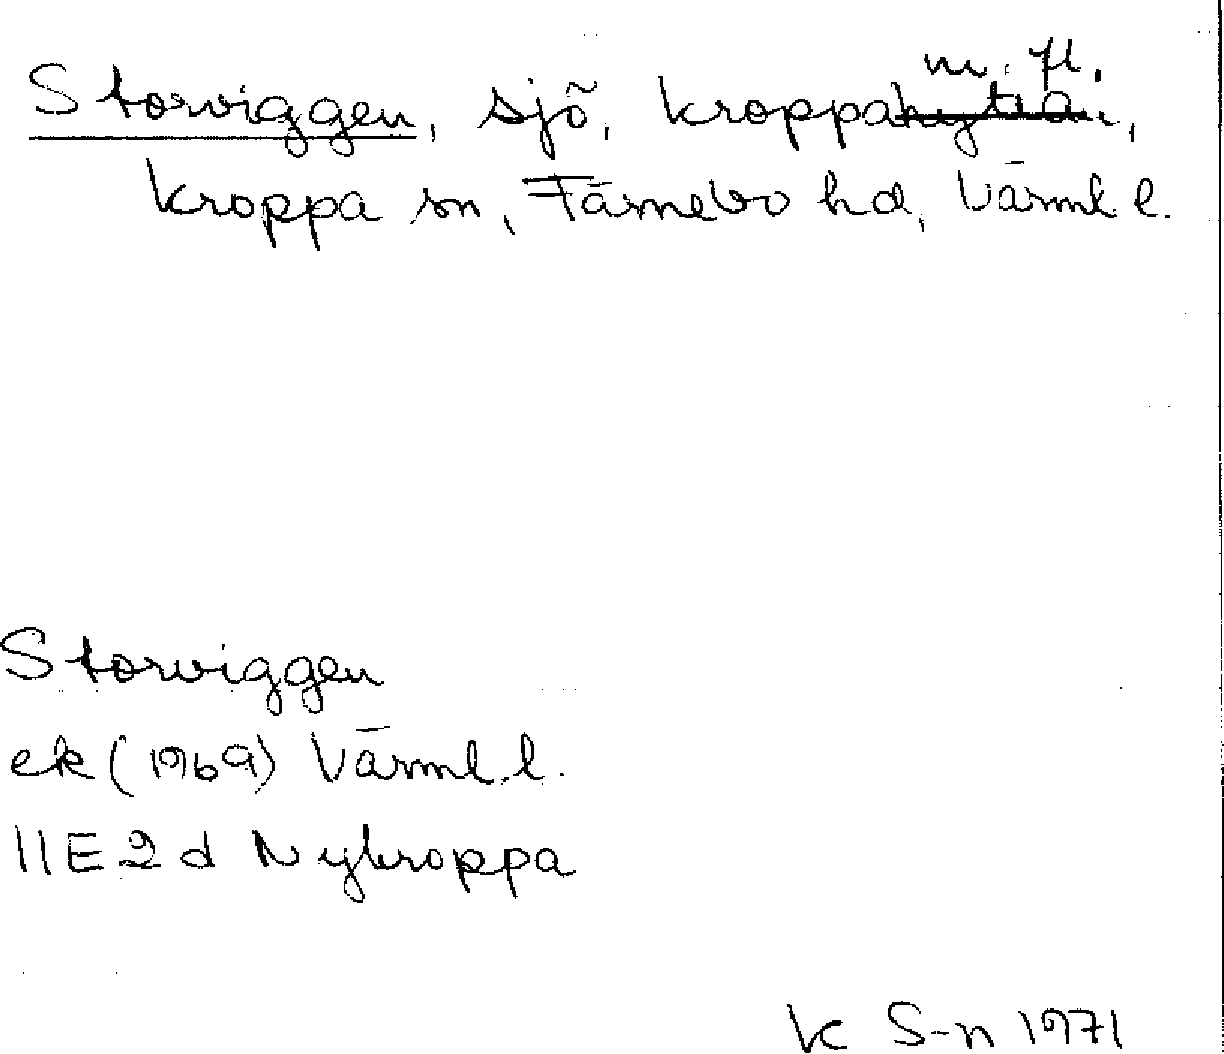 Storviggen, sjö, Kroppa m. fl.,
Kroppa sn, Färnebo hd, Värml. l.
Storviggen
ek (1969) Värml. l.
11E 2d Nykroppa
K S-n 1971